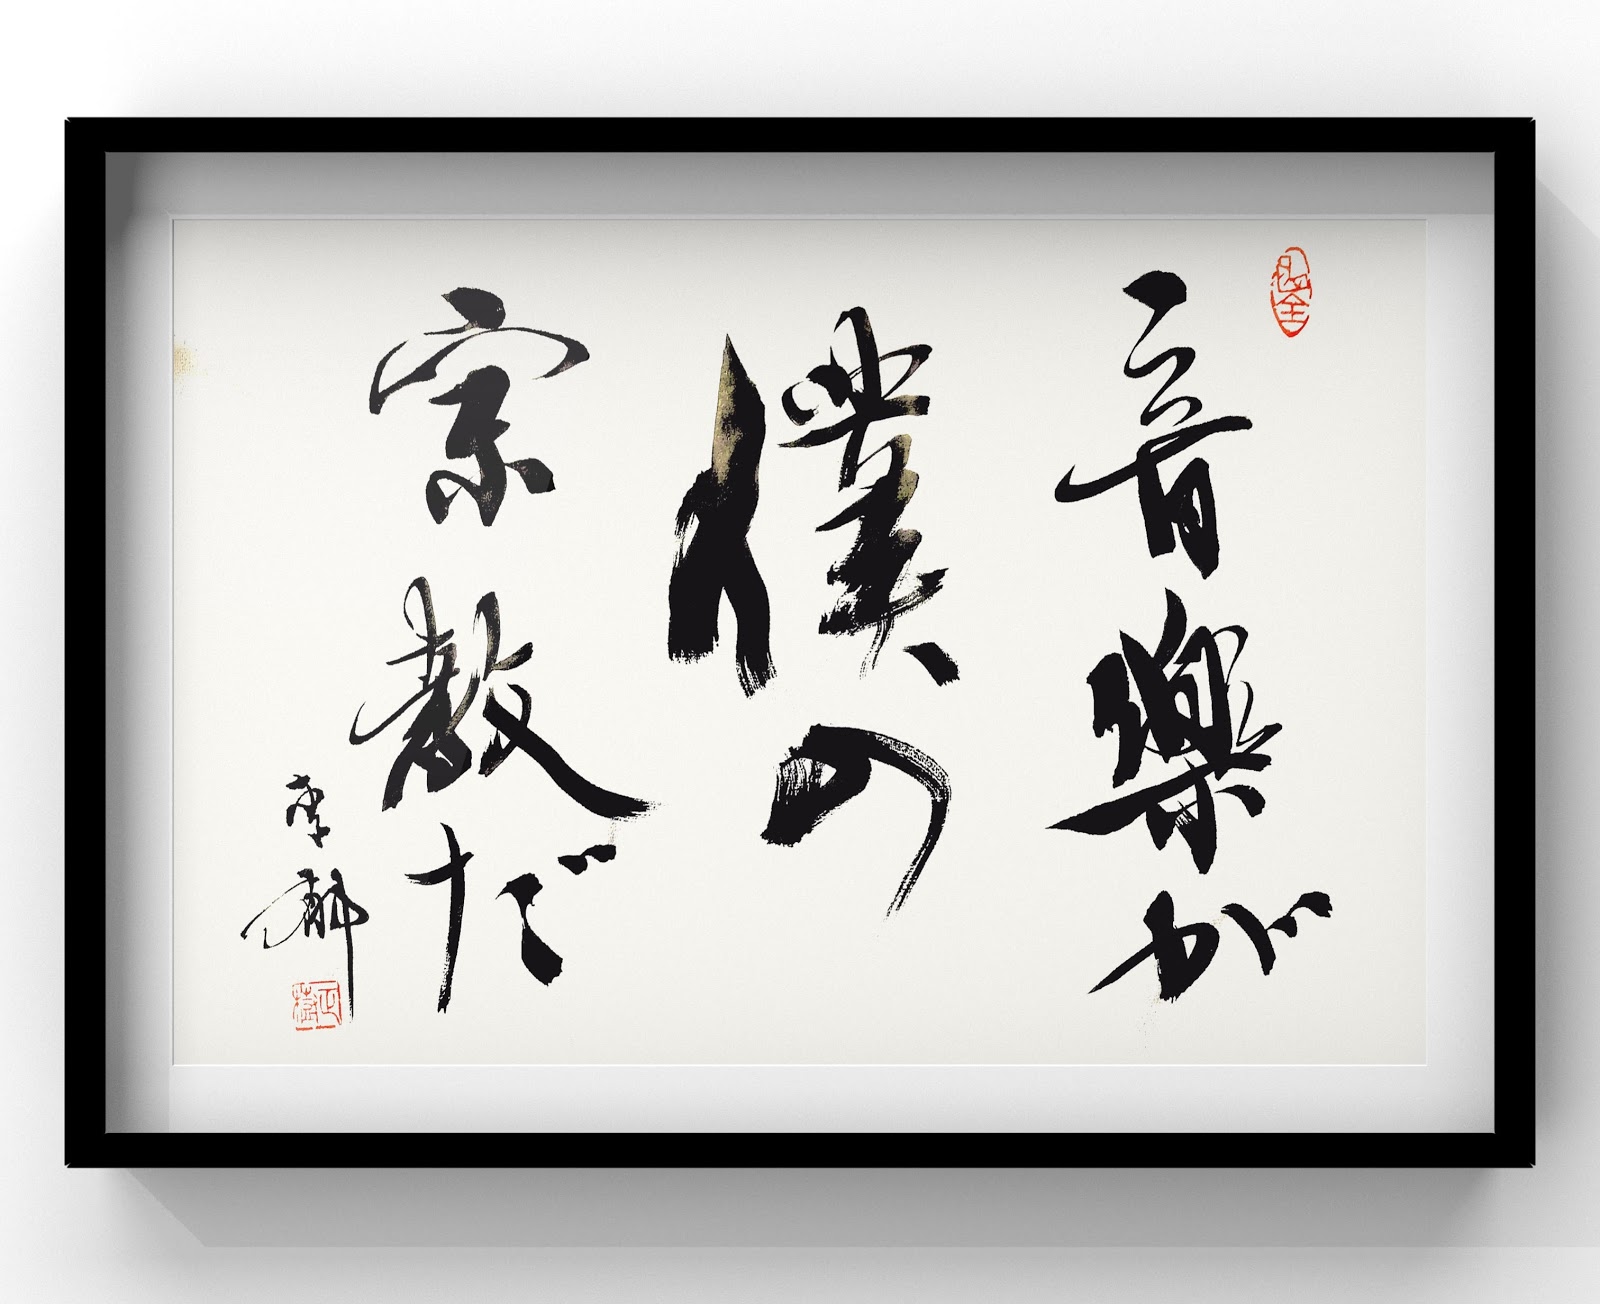 音樂が
僕の
宗教だ